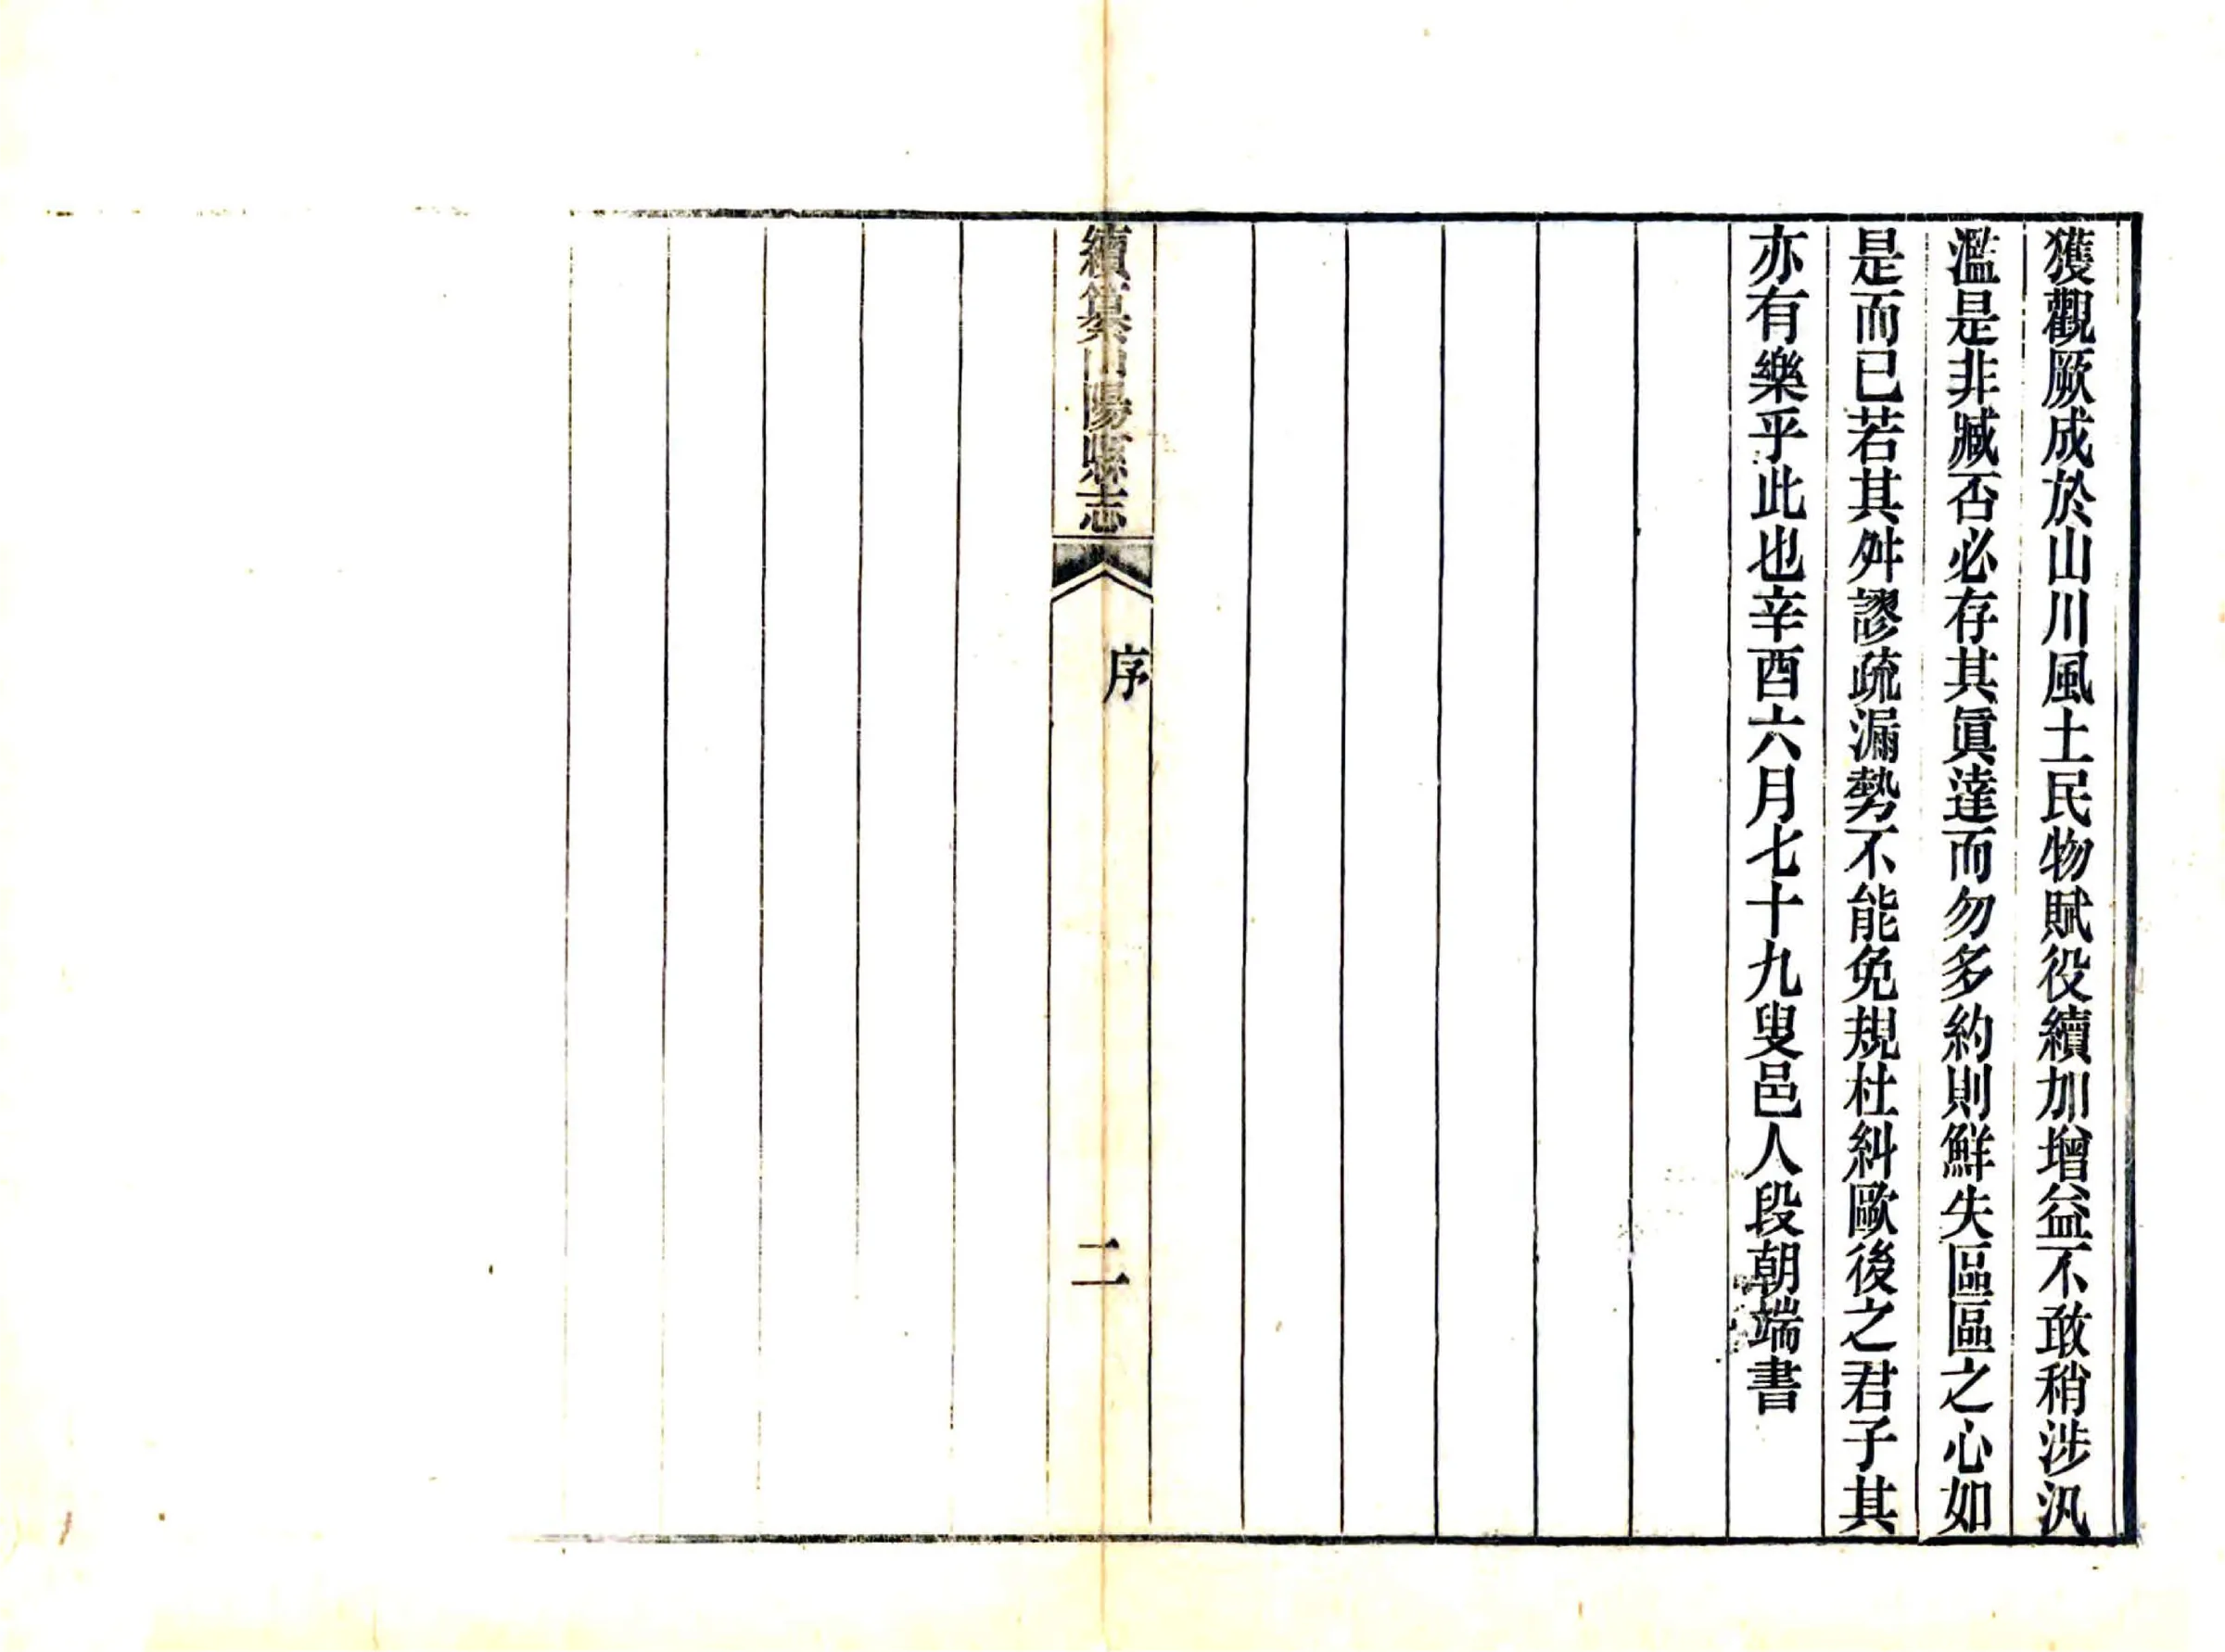 獲觀厥成於山川風土民物賦役續加增益不敢稍涉汎
濫是非臧否必存其眞達而勿多約則鮮失區區之心如
是而已若其舛謬疏漏勢不能免規杜糾歐後之君子其
亦有樂乎此也辛酉六月七十九叟邑人段朝端書
續纂山陽縣志
序
二